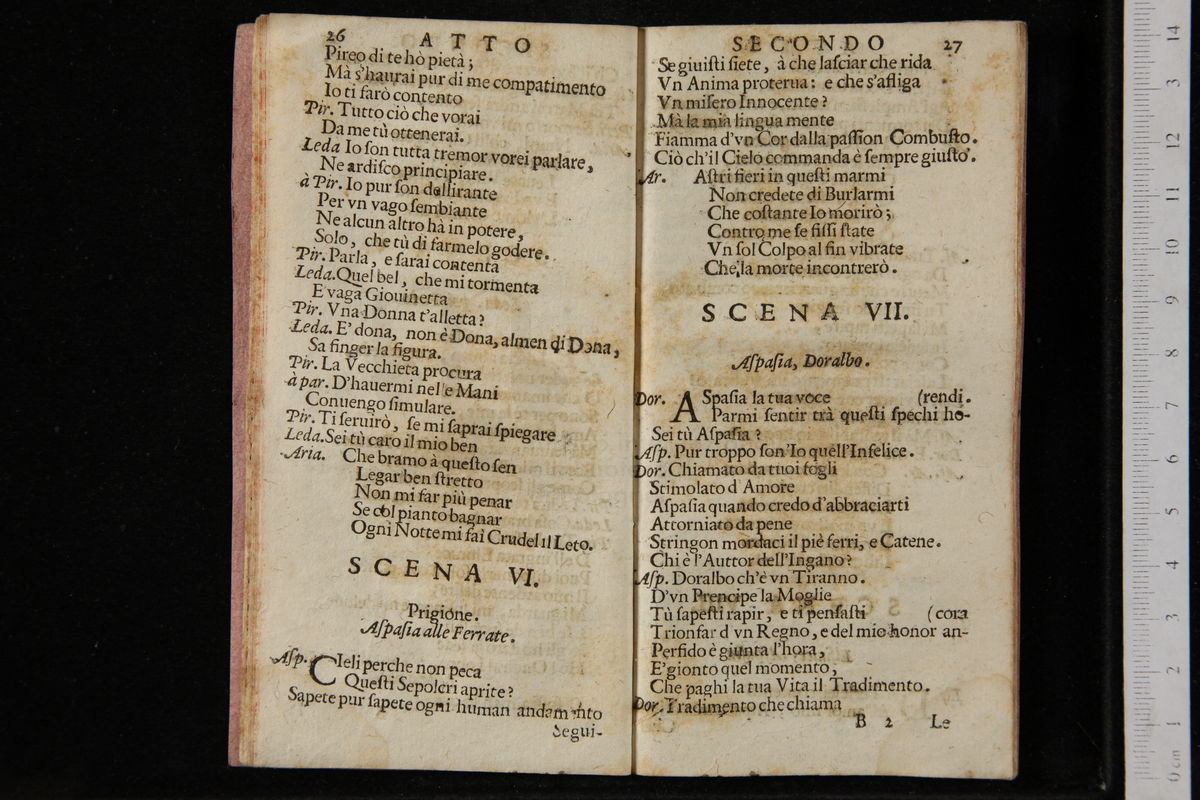 26 ATTO
Pireo di te hò pietà;
Mà s'haurai pur di me compatimento
Io ti farò contento
Pir. Tutto ciò che vorai
Da me tù ottenerai.
Leda Io son tutta tremor vorei parlare,
Ne ardisco principiare.
à Pir. Io pur son dellirante
Per vn vago sembiante
Ne alcun altro hà in potere,
Solo, che tù di farmelo godere.
Pir. Parla, e sarai contenta
Leda. Quel bel, che mi tormenta
E vaga Giouinetta
Pir. Vna Donna t'alletta?
Leda. E' dona, non è Dona, almen di Dona,
Sa finger la figura.
Pir. La Vecchieta procura
à par. D'hauermi nel e Mani
Conuengo simulare.
Pir. Ti seruirò, se mi saprai spiegare
Leda. Sei tù caro il mio ben
Aria. Che bramo à questo sen
Legar ben stretto
Non mi far più penar
Se col pianto bagnar
Ogni Notte mi fai Crudel il Leto.
SCENA VI.
Prigione.
Aspasia alle Ferrate.
Asp. CIeli perche non peca
Questi Sepolcri aprite?
Sapete pur sapete ogni human andamento
Segui-
SECONDO 27
Se giusti siete, à che lasciar che rida
Vn Anima proterua: e che s'afliga
Vn misero Innocente?
Mà la mia lingua mente
Fiamma d'vn Cor dalla passion Combusto.
Ciò ch'il Cielo commanda è sempre giusto.
Ar. Astri fieri in questi marmi
Non credete di Burlarmi
Che costante Io morirò;
Contro me se fissi state
Vn sol Colpo al fin vibrate
Che la morte incontrerò.
SCENA VII.
Aspasia, Doralbo.
Dor. ASpasia la tua voce (rendi.
Parmi sentir trà questi spechi ho-
Sei tù Aspasia?
Asp. Pur troppo son'Io quell'Infelice.
Dor. Chiamato da tuoi fogli
Stimolato d Amore
Aspasia quando credo d'abbraciarti
Attorniato da pene
Stringon mordaci il piè ferri, e Catene.
Chi è l'Auttor dell'Ingano?
Asp. Doralbo ch'è vn Tiranno.
D'vn Prencipe la Moglie
Tù sapesti rapir, e ti pensasti (cora
Trionfar d vn Regno, e del mio honor an-
Perfido è giunta l'hora,
E'gionto quel momento,
Che paghi la tua Vita il Tradimento.
Dor. Tradimento che chiama
B 2 Le